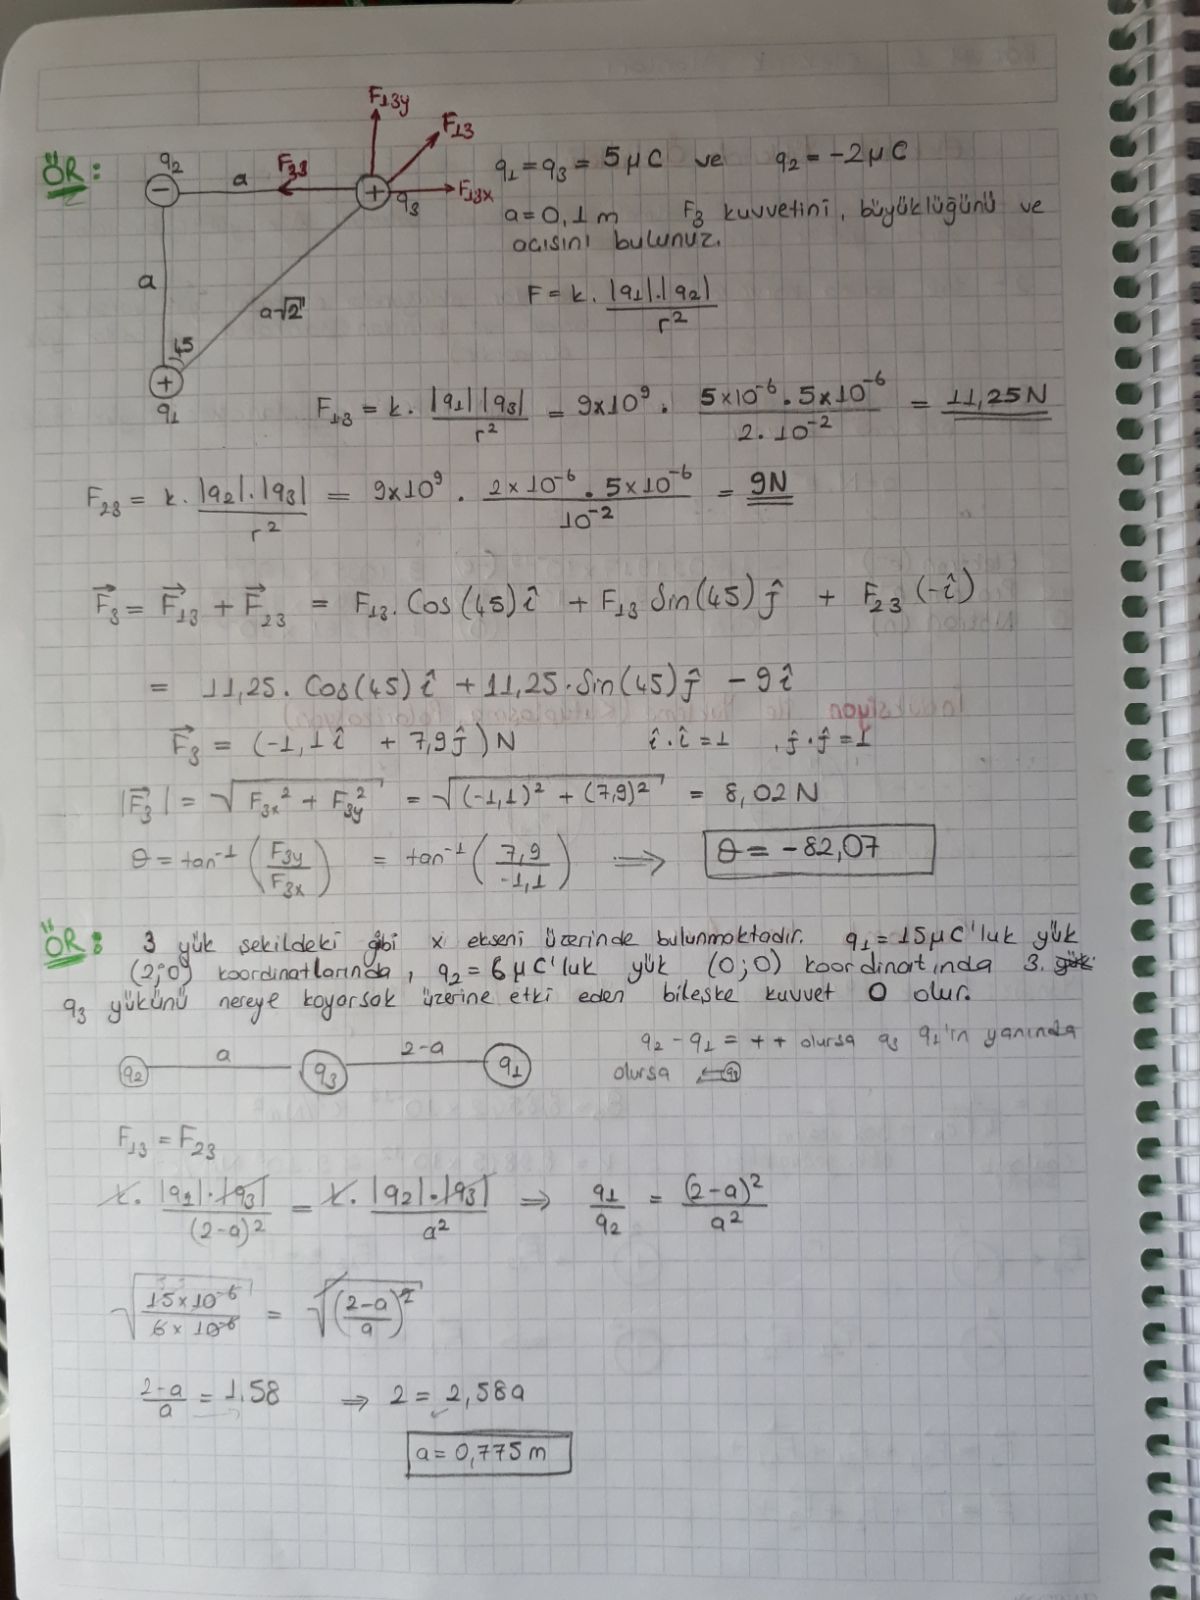 ÖR:
q2
a
F23
F13y
F13
F13x
q3
a
a√2
45
q1
q1 = q3 = 5 μC ve q2 = -2 μC
a = 0,1 m F3 kuvvetini, büyüklüğünü ve
açısını bulunuz.
F = k. |q1|.|q2| / r²
F13 = k. |q1| |q3| / r² = 9x10⁹ . 5x10⁻⁶ . 5x10⁻⁶ / 2.10⁻² = 11,25 N
F23 = k. |q2|.|q3| / r² = 9x10⁹ . 2x10⁻⁶ . 5x10⁻⁶ / 10⁻² = 9N
F⃗3 = F⃗13 + F⃗23 = F13.Cos(45)î + F13 Sin(45)ĵ + F23(-î)
= 11,25.Cos(45)î + 11,25.Sin(45)ĵ - 9î
F⃗3 = (-1,1î + 7,9ĵ)N î.î=1 , ĵ.ĵ=1
|F⃗3| = √(F3x² + F3y²) = √((-1,1)² + (7,9)²) = 8,02 N
θ = tan⁻¹(F3y / F3x) = tan⁻¹(7,9 / -1,1) ⟹ θ = -82,07
ÖR: 3 yük şekildeki gibi x ekseni üzerinde bulunmaktadır. q1 = 15μC'luk yük
(2;0) koordinatlarında, q2 = 6μC'luk yük (0;0) koordinatında 3. yük
q3 yükünü nereye koyarsak üzerine etki eden bileşke kuvvet 0 olur.
q2 a q3 2-a q1
q2 - q1 = + + olursa q3 q1'in yanında
olursa
F13 = F23
k. |q1|.|q3| / (2-a)² = k. |q2|.|q3| / a² ⇒ q1 / q2 = (2-a)² / a²
√(15x10⁻⁶ / 6x10⁻⁶) = √((2-a / a)²)
2-a / a = 1,58 ⇒ 2 = 2,58a
a = 0,775 m